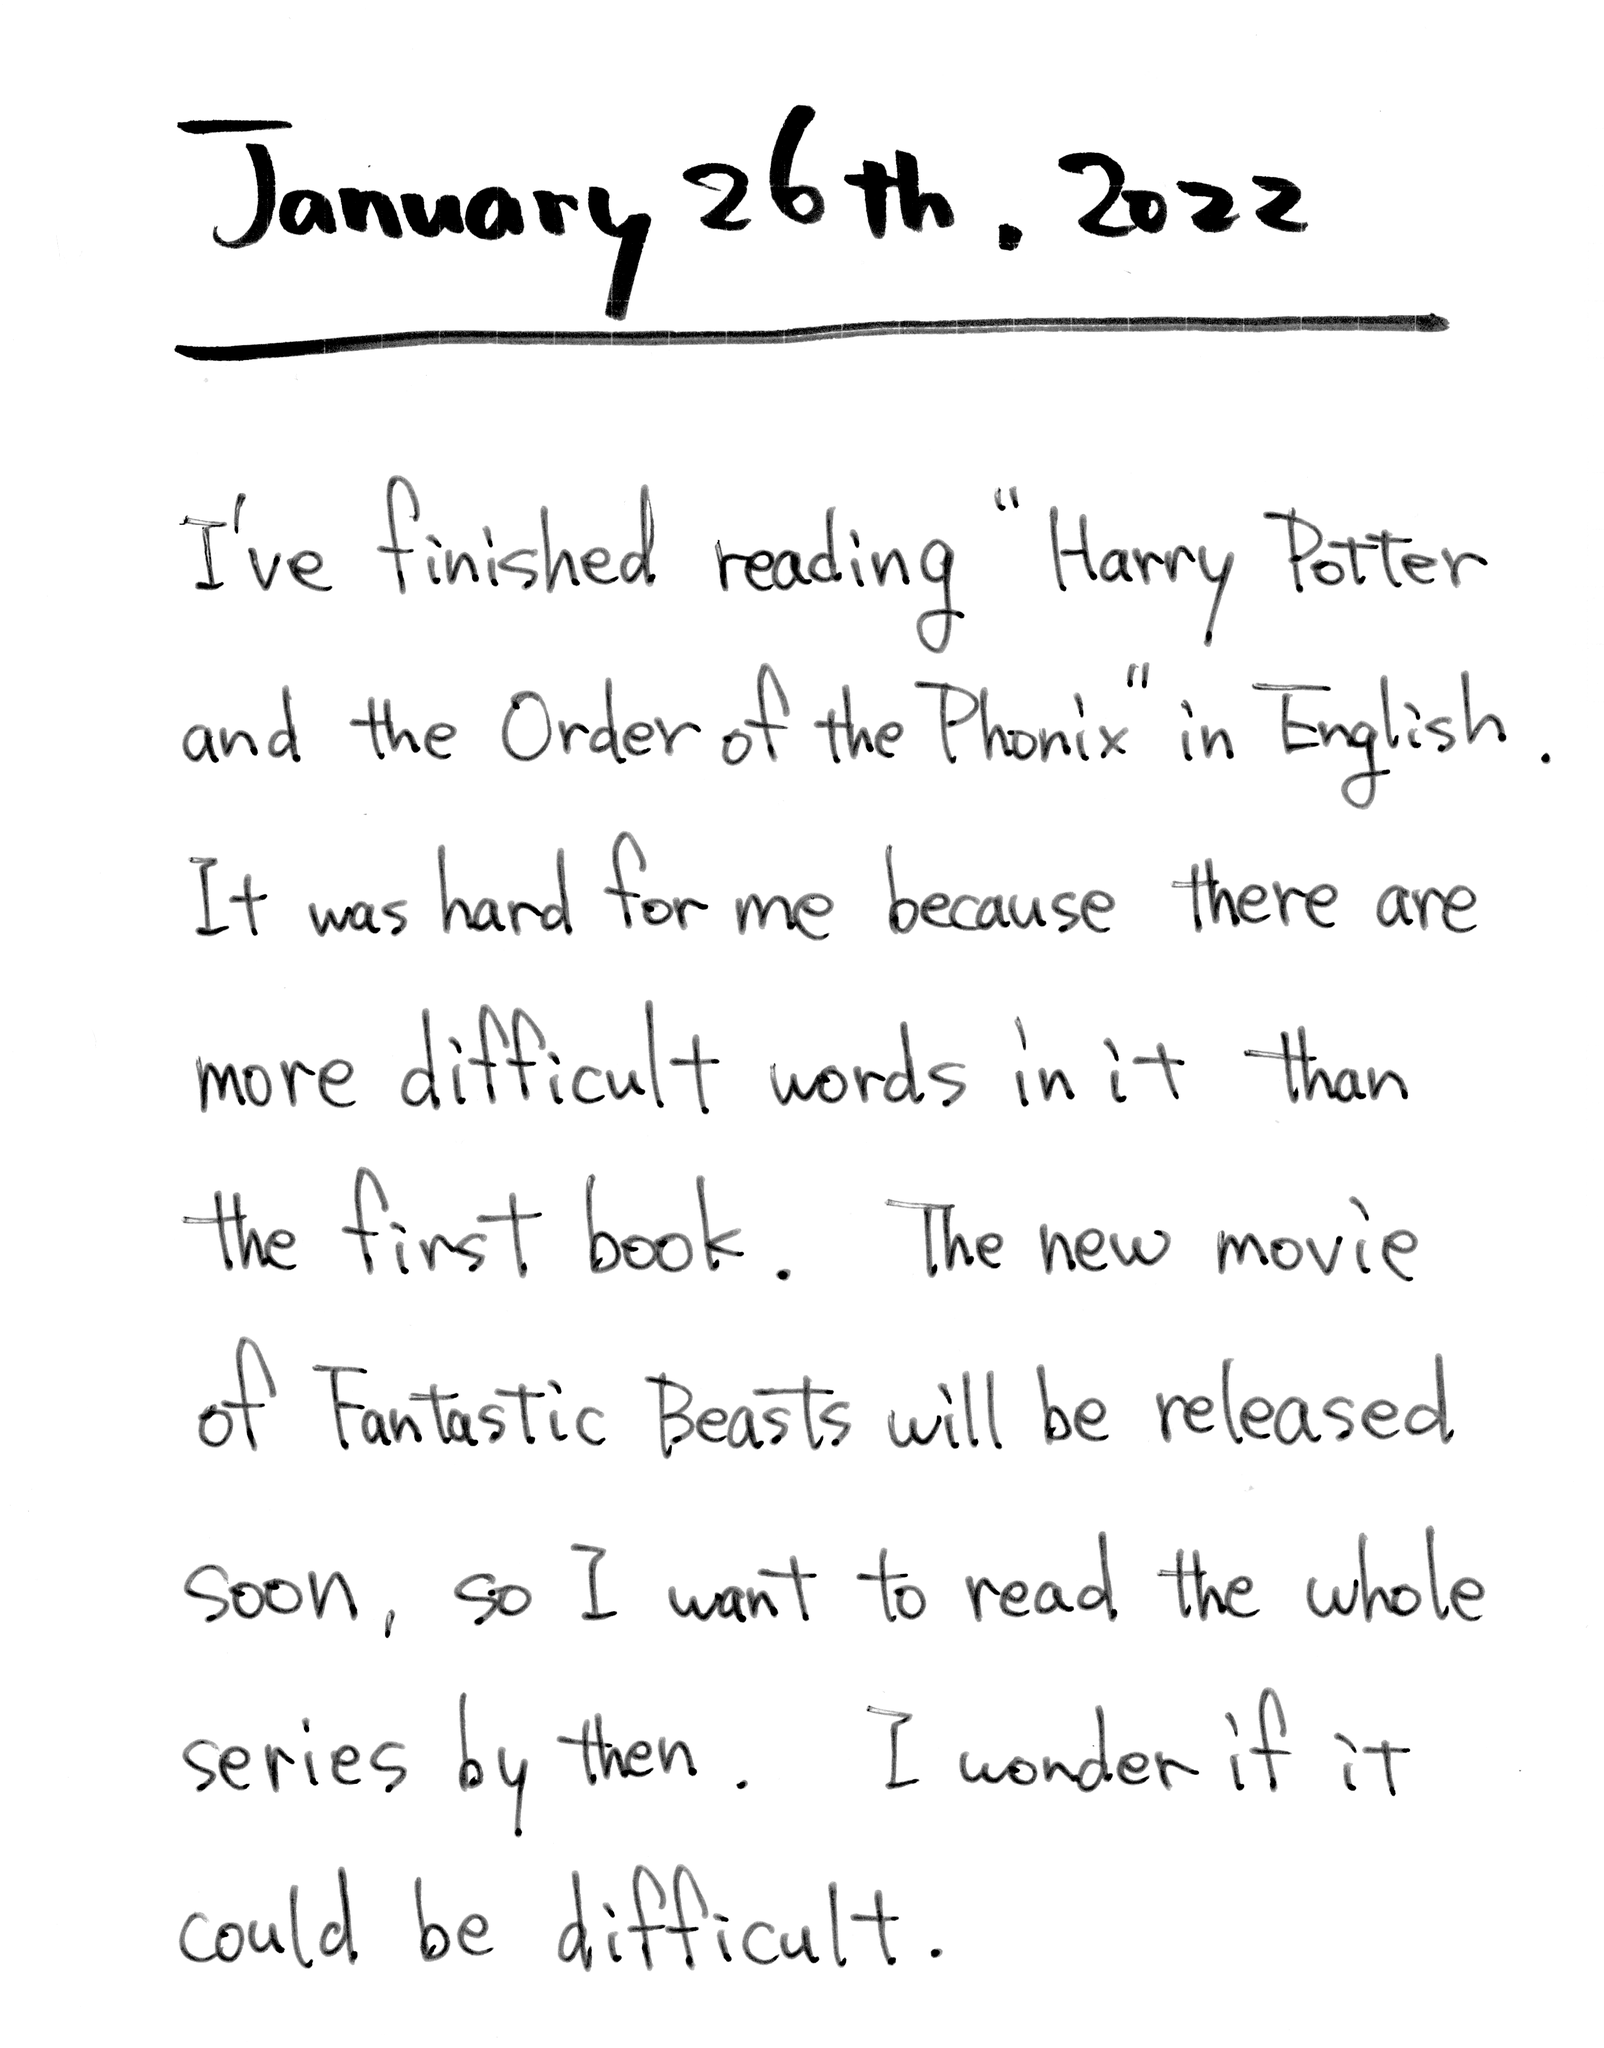 January 26th. 2022
I've finished reading "Harry Potter
and the Order of the Phonix" in English.
It was hard for me because there are
more difficult words in it than
the first book. The new movie
of Fantastic Beasts will be released
soon, so I want to read the whole
series by then. I wonder if it
could be difficult.